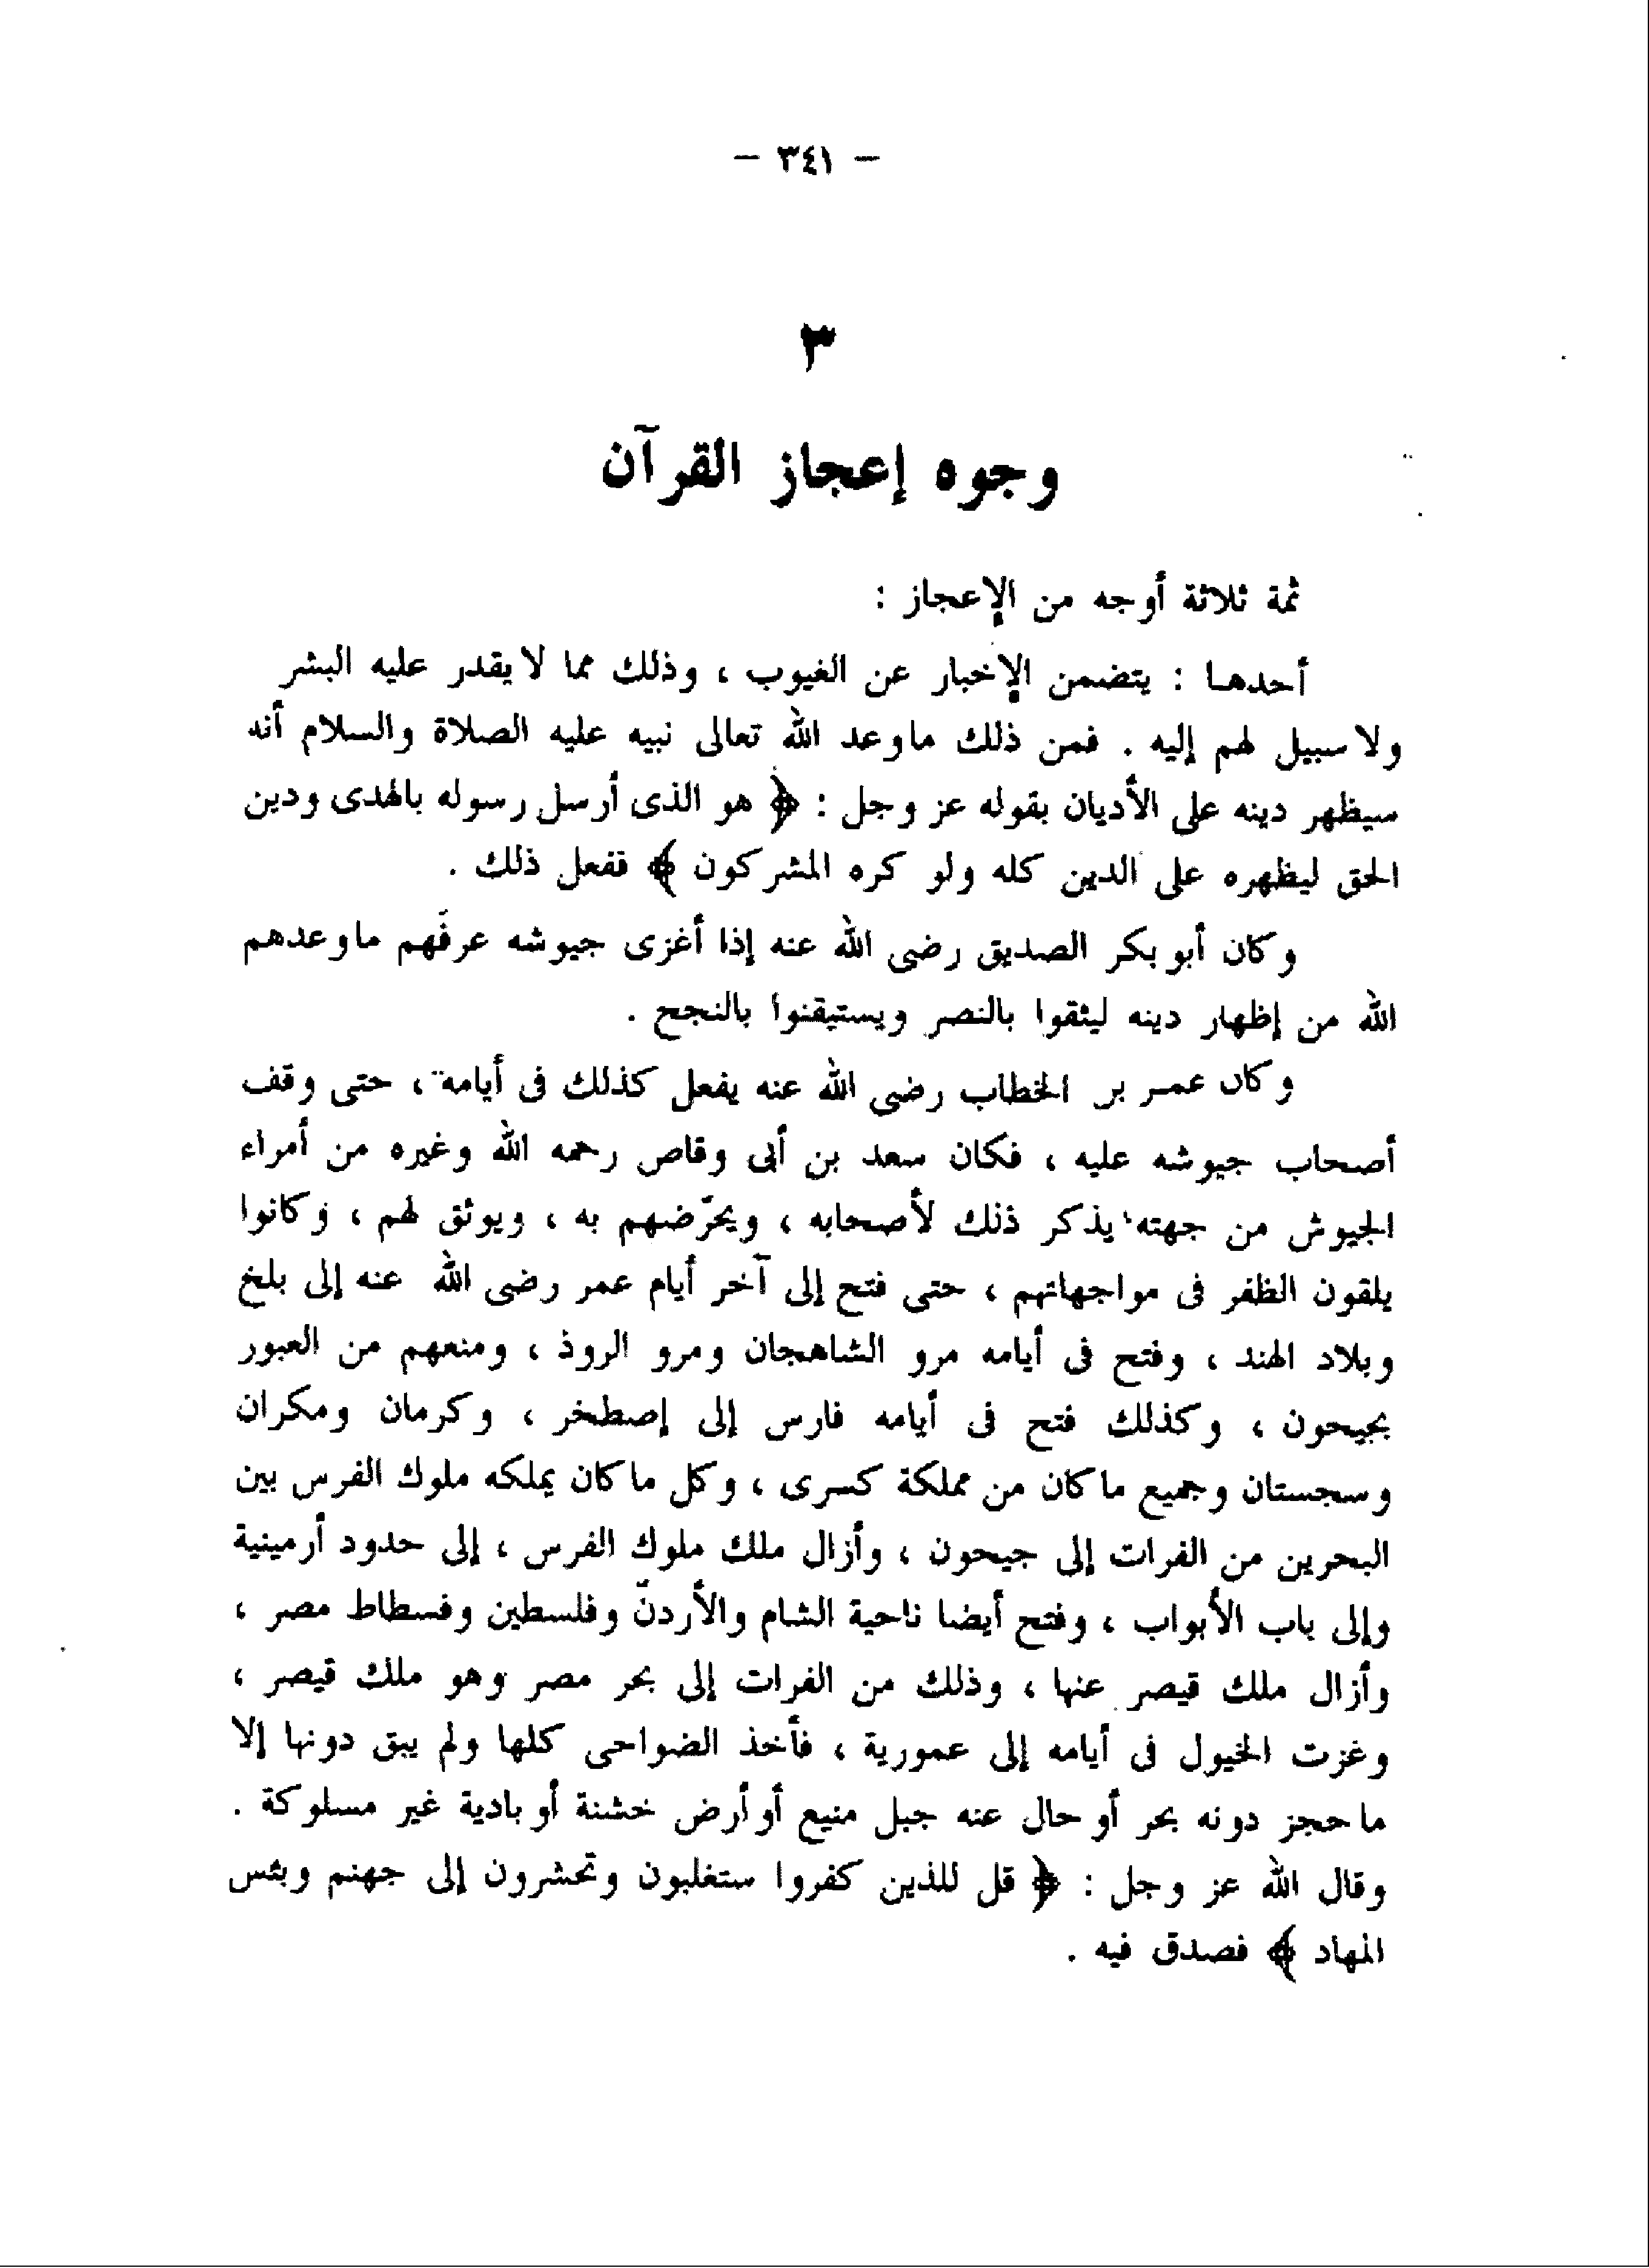 — ٣٤١ —
٣
وجوه إعجاز القرآن
ثمة ثلاثة أوجه من الإعجاز :
أحدها : يتضمن الإخبار عن الغيوب ، وذلك مما لا يقدر عليه البشر
ولا سبيل لهم إليه . فمن ذلك ما وعد الله تعالى نبيه عليه الصلاة والسلام أنه
سيظهر دينه على الأديان بقوله عز وجل : ﴿ هو الذى أرسل رسوله بالهدى ودين
الحق ليظهره على الدين كله ولو كره المشركون ﴾ ففعل ذلك .
وكان أبو بكر الصديق رضى الله عنه إذا أغزى جيوشه عرفَّهم ما وعدهم
الله من إظهار دينه ليثقوا بالنصر ويستيقنوا بالنجح .
وكان عمر بن الخطاب رضى الله عنه يفعل كذلك فى أيامه ، حتى وقف
أصحاب جيوشه عليه ، فكان سعد بن أبى وقاص رحمه الله وغيره من أمراء
الجيوش من جهته يذكر ذلك لأصحابه ، ويحرّضهم به ، ويوثق لهم ، وكانوا
يلقون الظفر فى مواجهاتهم ، حتى فتح إلى آخر أيام عمر رضى الله عنه إلى بلخ
وبلاد الهند ، وفتح فى أيامه مرو الشاهجان ومرو الروذ ، ومنعهم من العبور
بجيحون ، وكذلك فتح فى أيامه فارس إلى إصطخر ، وكرمان ومكران
وسجستان وجميع ما كان من مملكة كسرى ، وكل ما كان يملكه ملوك الفرس بين
البحرين من الفرات إلى جيحون ، وأزال ملك ملوك الفرس ، إلى حدود أرمينية
وإلى باب الأبواب ، وفتح أيضا ناحية الشام والأردنّ وفلسطين وفسطاط مصر ،
وأزال ملك قيصر عنها ، وذلك من الفرات إلى بحر مصر وهو ملك قيصر ،
وغزت الخيول فى أيامه إلى عمورية ، فأخذ الضواحى كلها ولم يبق دونها إلا
ما حجز دونه بحر أو حال عنه جبل منيع أو أرض خشنة أو بادية غير مسلوكة .
وقال الله عز وجل : ﴿ قل للذين كفروا ستغلبون وتحشرون إلى جهنم وبئس
المهاد ﴾ فصدق فيه .